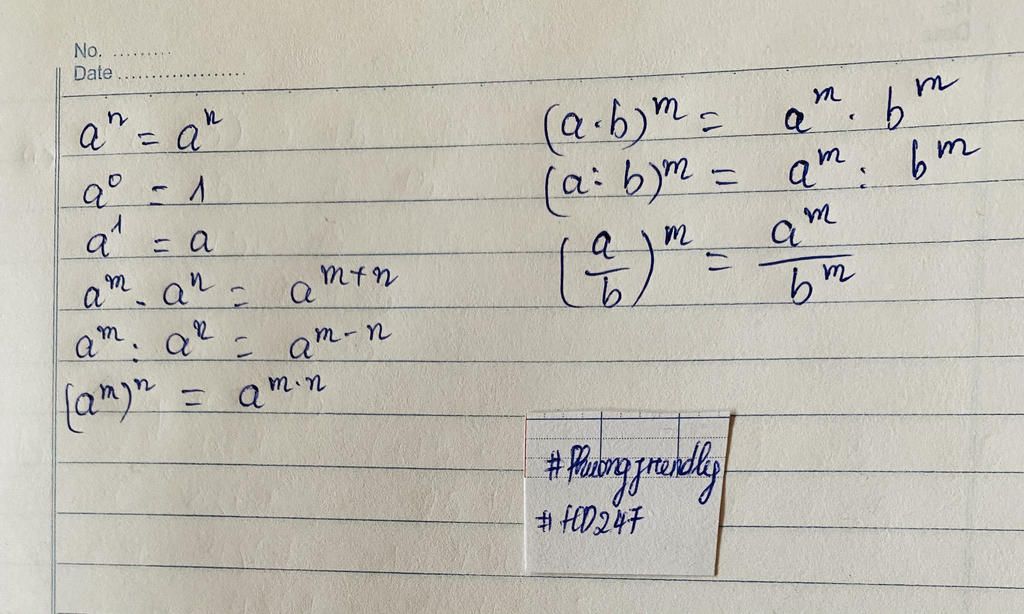 No. .........
Date ...................
aⁿ = aⁿ
a⁰ = 1
a¹ = a
aᵐ . aⁿ = aᵐ⁺ⁿ
aᵐ : aⁿ = aᵐ⁻ⁿ
(aᵐ)ⁿ = aᵐ·ⁿ
(a.b)ᵐ = aᵐ . bᵐ
(a : b)ᵐ = aᵐ : bᵐ
(a/b)ᵐ = aᵐ/bᵐ
#Phuongfriendly
#HD247